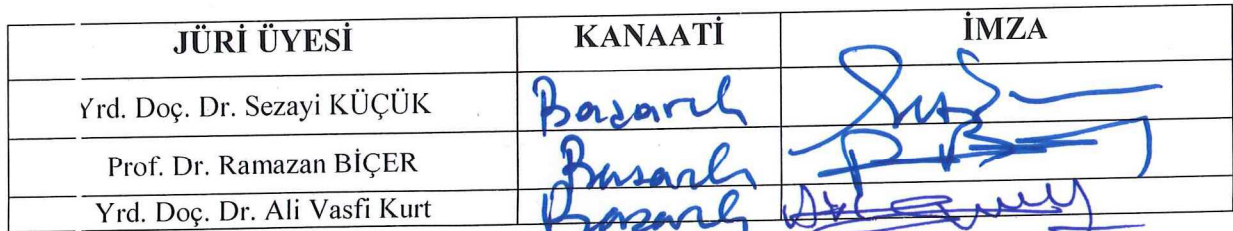 JÜRİ ÜYESİ KANAATİ İMZA
Yrd. Doç. Dr. Sezayi KÜÇÜK Başarılı
Prof. Dr. Ramazan BİÇER Başarılı
Yrd. Doç. Dr. Ali Vasfi Kurt Başarılı